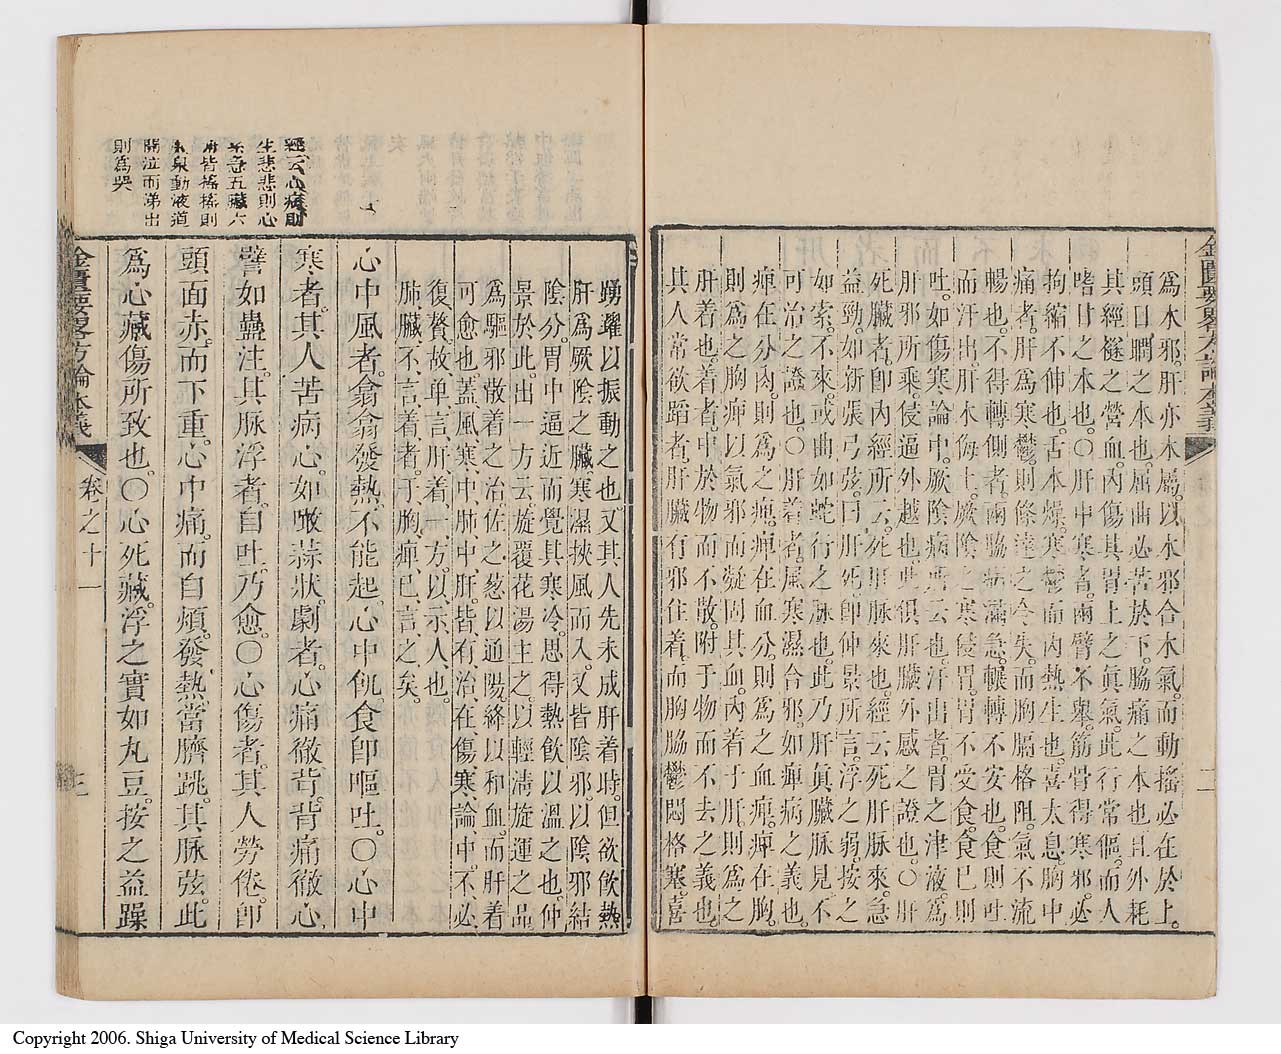 爲木邪。肝亦木屬。以木邪合木氣。而動搖必在於上。
頭目瞤之本也。屈曲必苦於下。脇痛之本也。且外耗
其經襚之營血。內傷其胃上之眞氣。此行常傴。而人
嗜甘之本也。〇肝中寒者。兩臂不舉。筋骨得寒邪。必
拘縮不伸也。舌本燥。寒鬱而內熱生也。喜太息。胸中
痛者。肝爲寒鬱。則條達之令失。而胸膈格阻。氣不流
暢也。不得轉側者。兩脇病滿急。輾轉不安也。食則吐
而汗出。肝木侮土。厥陰之寒侵胃。胃不受食。食已則
吐。如傷寒論中。厥陰病所云也。汗出者。胃之津液。爲
肝邪所乘。侵逼外越也。此俱肝臟外感之證也。〇肝
死臟者。卽內經所云。死肝脉來也。經云死肝脉來。急
益勁。如新張弓弦。曰肝死。卽仲景所言。浮之弱。按之
如索。不來。或曲如蛇行之脉也。此乃肝眞臟脉見。不
可治之證也。〇肝着者。風寒濕合邪。如痺病之義也。
痺在分肉。則爲之痺。痺在血分。則爲之血痺。痺在胸。
則爲之胸痺。以氣邪而凝固其血。內着于肝。則爲之
肝着也。着者。中於物而不散。附于物而不去之義也。
其人常欲蹈者。肝臟有邪住着。而胸脇鬱悶格塞。喜
金匱要畧方論本義
踴躍以振動之也。又其人先未成肝着時。但欲飲熱
肝爲厥陰之臟。寒濕挾風而入。又皆陰邪。以陰邪結
陰分。胃中逼近而覺其寒冷。思得熱飲以溫之也。仲
景於此。出一方云。旋覆花湯主之。以輕淸旋運之品
爲驅邪散着之治。佐之葱以通陽。絳以和血。而肝着
可愈也。蓋風寒中肺。中肝。皆有治在傷寒論中。不必
復贅。故單言肝着一方。以示人也。
肺臟不言着者。于胸痺已言之矣。
心中風者。翕翕發熱。不能起。心中飢。食卽嘔吐。〇心中
寒者。其人苦病心。如噉蒜狀。劇者。心痛徹背。背痛徹心。
譬如蠱注。其脉浮者。自吐乃愈。〇心傷者。其人勞倦。卽
頭面赤。而下重。心中痛。而自煩。發熱。當臍跳。其脉弦。此
爲心藏傷所致也。〇心死藏。浮之實如丸豆。按之益躁
經云心病則
生悲悲則心
系急五臟六
腑皆搖搖則
泉動液道
開泣而涕出
則爲哭
金匱要畧方論本義
卷之十一
七
Copyright 2006. Shiga University of Medical Science Library